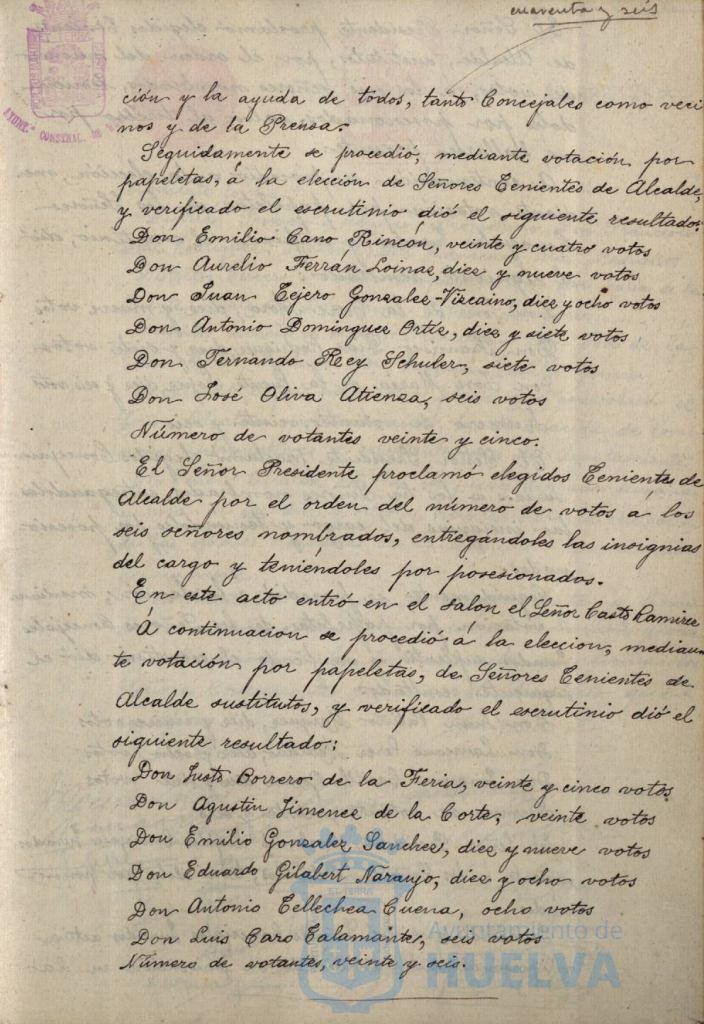 cuarenta y seis
ción y la ayuda de todos, tanto Concejales como veci
nos y de la Prensa.
Seguidamente se procedió, mediante votación por
papeletas, á la elección de Señores Tenientes de Alcalde,
y verificado el escrutinio dió el siguiente resultado:
Don Emilio Cano Rincón, veinte y cuatro votos
Don Aurelio Ferrán Loinaz, diez y nueve votos
Don Juan Tejero Gonzalez-Vizcaino, diez y ocho votos
Don Antonio Dominguez Ortiz, diez y siete votos
Don Fernando Rey Schuler, siete votos
Don José Oliva Atienza, seis votos
Número de votantes veinte y cinco.
El Señor Presidente proclamó elegidos Tenientes de
Alcalde por el orden del número de votos á los
seis señores nombrados, entregándoles las insignias
del cargo y teniéndoles por posesionados.
En este acto entró en el salon el Señor Casto Ramirez
Á continuacion se procedió á la eleccion, median
te votación por papeletas, de Señores Tenientes de
Alcalde sustitutos, y verificado el escrutinio dió el
siguiente resultado:
Don Justo Borrero de la Feria, veinte y cinco votos
Don Agustin Jimenez de la Corte, veinte votos
Don Emilio Gonzalez Sanchez, diez y nueve votos
Don Eduardo Gilabert Naranjo, diez y ocho votos
Don Antonio Tellechea Cuena, ocho votos
Don Luis Caro Talamante, seis votos
Número de votantes, veinte y seis.
Ayuntamiento de
HUELVA